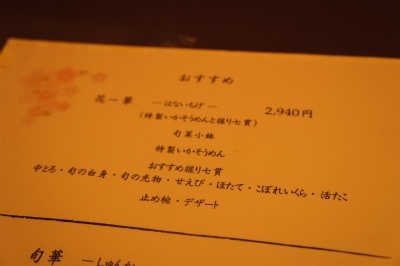 おすすめ
花一華 ―はないちげ― 2,940円
(特製いかそうめんと握り七貫)
旬菜小鉢
特製いかそうめん
おすすめ握り七貫
中とろ・旬の白身・旬の光物・せえび・ほたて・こぼれいくら・活たこ
止め椀・デザート
旬華 ―しゅんか